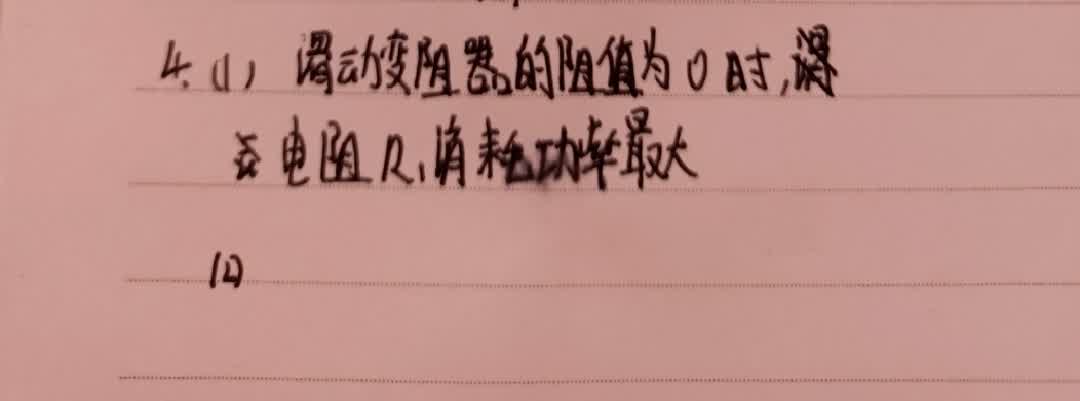 4.(1) 滑动变阻器的阻值为0时,
电阻R₁消耗功率最大
(2)